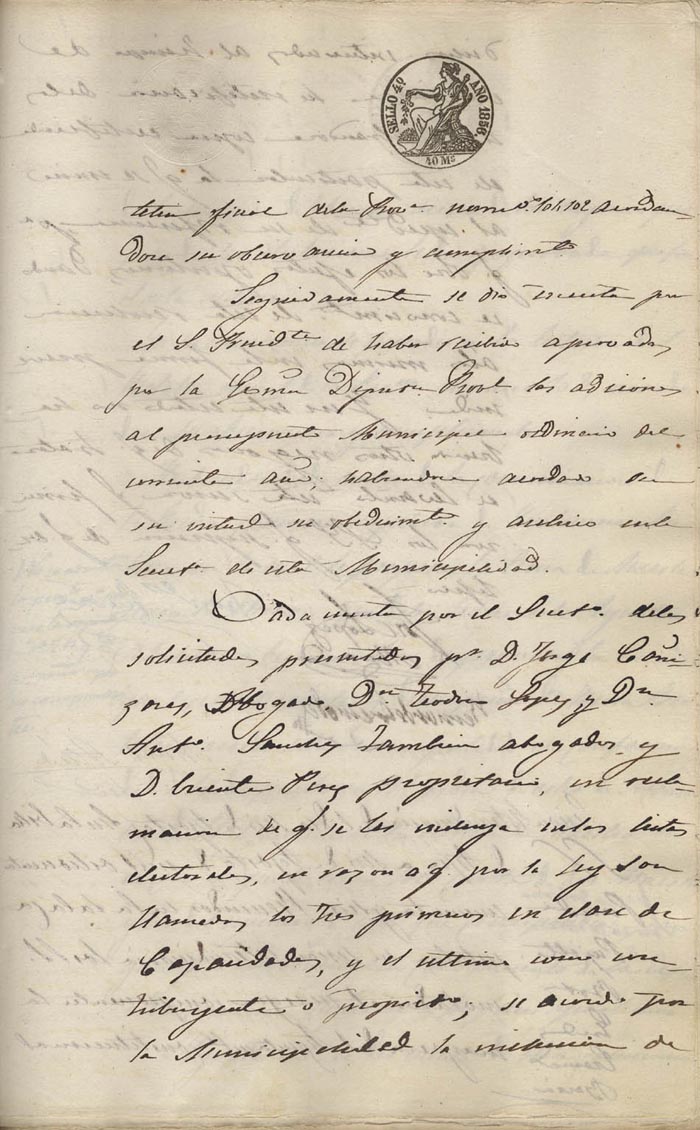 SELLO 4º AÑO 1856.
40 Ms
letin oficial dela Provª numº 101, 102 acordan-
dose su observancia y cumplimtº
Seguidamente se dio cuenta por
el S. Presidte de haber recibido aprovadas
por la Exma Diputn Provl las adiciones
al presupuesto Municipal ordinario del
corriente año, habiendose acordado en
su virtud su obedecimtº y archivo enla
Secretª de esta Municipalidad.
Dada cuenta por el Secretº delas
solicitudes presentadas pr D. Jorge Cañi-
zares, Abogado, Dn Teodoro Lopez, y Dn
Antº Sanchez tambien abogados, y
D. Vicente Perez propietario, en recla-
macion de q. se les incluya enlas listas
electorales, en razon a q. por la ley son
llamados los tres primeros en clase de
Capacidades, y el ultimo como con-
tribuyente o propietº; se acordo por
la Municipalidad la inclusion de